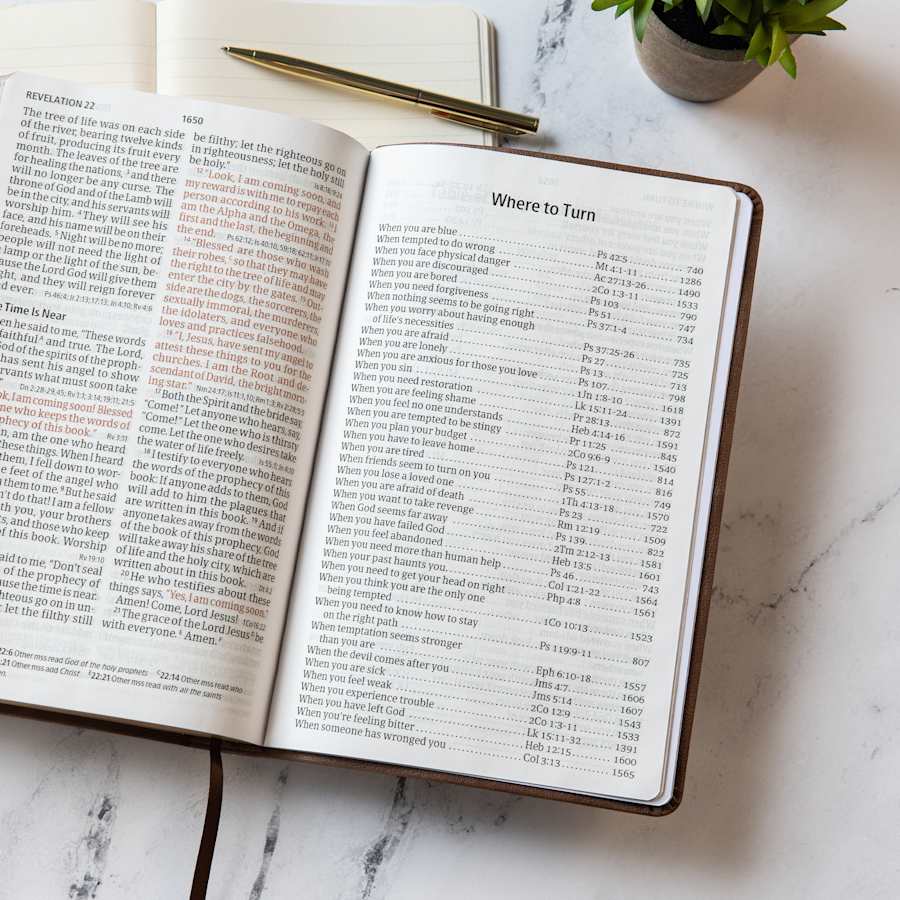 REVELATION 22
1650
The tree of life was on each side
of the river, bearing twelve kinds
of fruit, producing its fruit every
month. The leaves of the tree are
for healing the nations, ³ and there
will no longer be any curse. The
throne of God and of the Lamb will
be in the city, and his servants will
worship him. ⁴ They will see his
face, and his name will be on their
foreheads. ⁵ Night will be no more;
people will not need the light of
lamp or the light of the sun, be-
cause the Lord God will give them
light, and they will reign forever
and ever. Ps 46:4; Ir 2:13; 17:13; Jn 4:10; Rv 4:6
Time Is Near
he said to me, "These words
faithful and true. The Lord,
God of the spirits of the proph-
has sent his angel to show
servants what must soon take
Dn 2:28-29,45; Rv 1:1; 3:14; 19:11; 21:5
I am coming soon! Blessed
one who keeps the words of
prophecy of this book." Rv 3:11
am the one who heard
these things. When I heard
them, I fell down to wor-
feet of the angel who
them to me. ⁹ But he said
do that! I am a fellow
with you, your brothers
and those who keep
of this book. Worship
Rv 19:10
said to me, "Don't seal
of the prophecy of
because the time is near.
righteous go on in un-
let the filthy still
be filthy; let the righteous go on
in righteousness; let the holy still
be holy."
¹² "Look, I am coming soon, and
my reward is with me to repay each
person according to his work. ¹³ I
am the Alpha and the Omega, the
first and the last, the beginning and
the end. Ps 62:12; Is 40:10; 59:18; 62:11; Jr 17:10
¹⁴ "Blessed are those who wash
their robes, so that they may have
the right to the tree of life and may
enter the city by the gates. ¹⁵ Out-
side are the dogs, the sorcerers, the
sexually immoral, the murderers,
the idolaters, and everyone who
loves and practices falsehood.
¹⁶ "I, Jesus, have sent my angel to
attest these things to you for the
churches. I am the Root and de-
scendant of David, the bright morn-
ing star." Nm 24:17; Is 11:1,10; Rm 1:3; Rv 2:28; 5:5
¹⁷ Both the Spirit and the bride say,
"Come!" Let anyone who hears, say,
"Come!" Let the one who is thirsty
come. Let the one who desires take
the water of life freely. Is 55:1; Jn 4:10
¹⁸ I testify to everyone who hears
the words of the prophecy of this
book: If anyone adds to them, God
will add to him the plagues that
are written in this book. ¹⁹ And if
anyone takes away from the words
of the book of this prophecy, God
will take away his share of the tree
of life and the holy city, which are
written about in this book. Dt 4:2
²⁰ He who testifies about these
things says, "Yes, I am coming soon."
Amen! Come, Lord Jesus! 1Co 16:22
²¹ The grace of the Lord Jesus be
with everyone. Amen.
22:6 Other mss read God of the holy prophets 22:14 Other mss read who
22:21 Other mss add Christ 22:21 Other mss read with all the saints
Where to Turn
When you are blue Ps 42:5 740
When tempted to do wrong Mt 4:1-11 1286
When you face physical danger Ac 27:13-26 1490
When you are discouraged 2Co 1:3-11 1533
When you are bored Ps 103 790
When you need forgiveness Ps 51 747
When nothing seems to be going right Ps 37:1-4 734
When you worry about having enough
of life's necessities Ps 37:25-26 735
When you are afraid Ps 27 725
When you are lonely Ps 13 713
When you are anxious for those you love Ps 107 798
When you sin 1Jn 1:8-10 1618
When you need restoration Lk 15:11-24 1391
When you are feeling shame Pr 28:13 872
When you feel no one understands Heb 4:14-16 1591
When you are tempted to be stingy Pr 11:25 845
When you plan your budget 2Co 9:6-9 1540
When you have to leave home Ps 121 814
When you are tired Ps 127:1-2 816
When friends seem to turn on you Ps 55 749
When you lose a loved one 1Th 4:13-18 1570
When you are afraid of death Ps 23 722
When you want to take revenge Rm 12:19 1509
When God seems far away Ps 139 822
When you have failed God 2Tm 2:12-13 1581
When you feel abandoned Heb 13:5 1601
When you need more than human help Ps 46 743
When your past haunts you Col 1:21-22 1564
When you need to get your head on right Php 4:8 1561
When you think you are the only one
being tempted 1Co 10:13 1523
When you need to know how to stay
on the right path Ps 119:9-11 807
When temptation seems stronger
than you are Eph 6:10-18 1557
When the devil comes after you Jms 4:7 1606
When you are sick Jms 5:14 1607
When you feel weak 2Co 12:9 1543
When you experience trouble 2Co 1:3-11 1533
When you have left God Lk 15:11-32 1391
When you're feeling bitter Heb 12:15 1600
When someone has wronged you Col 3:13 1565